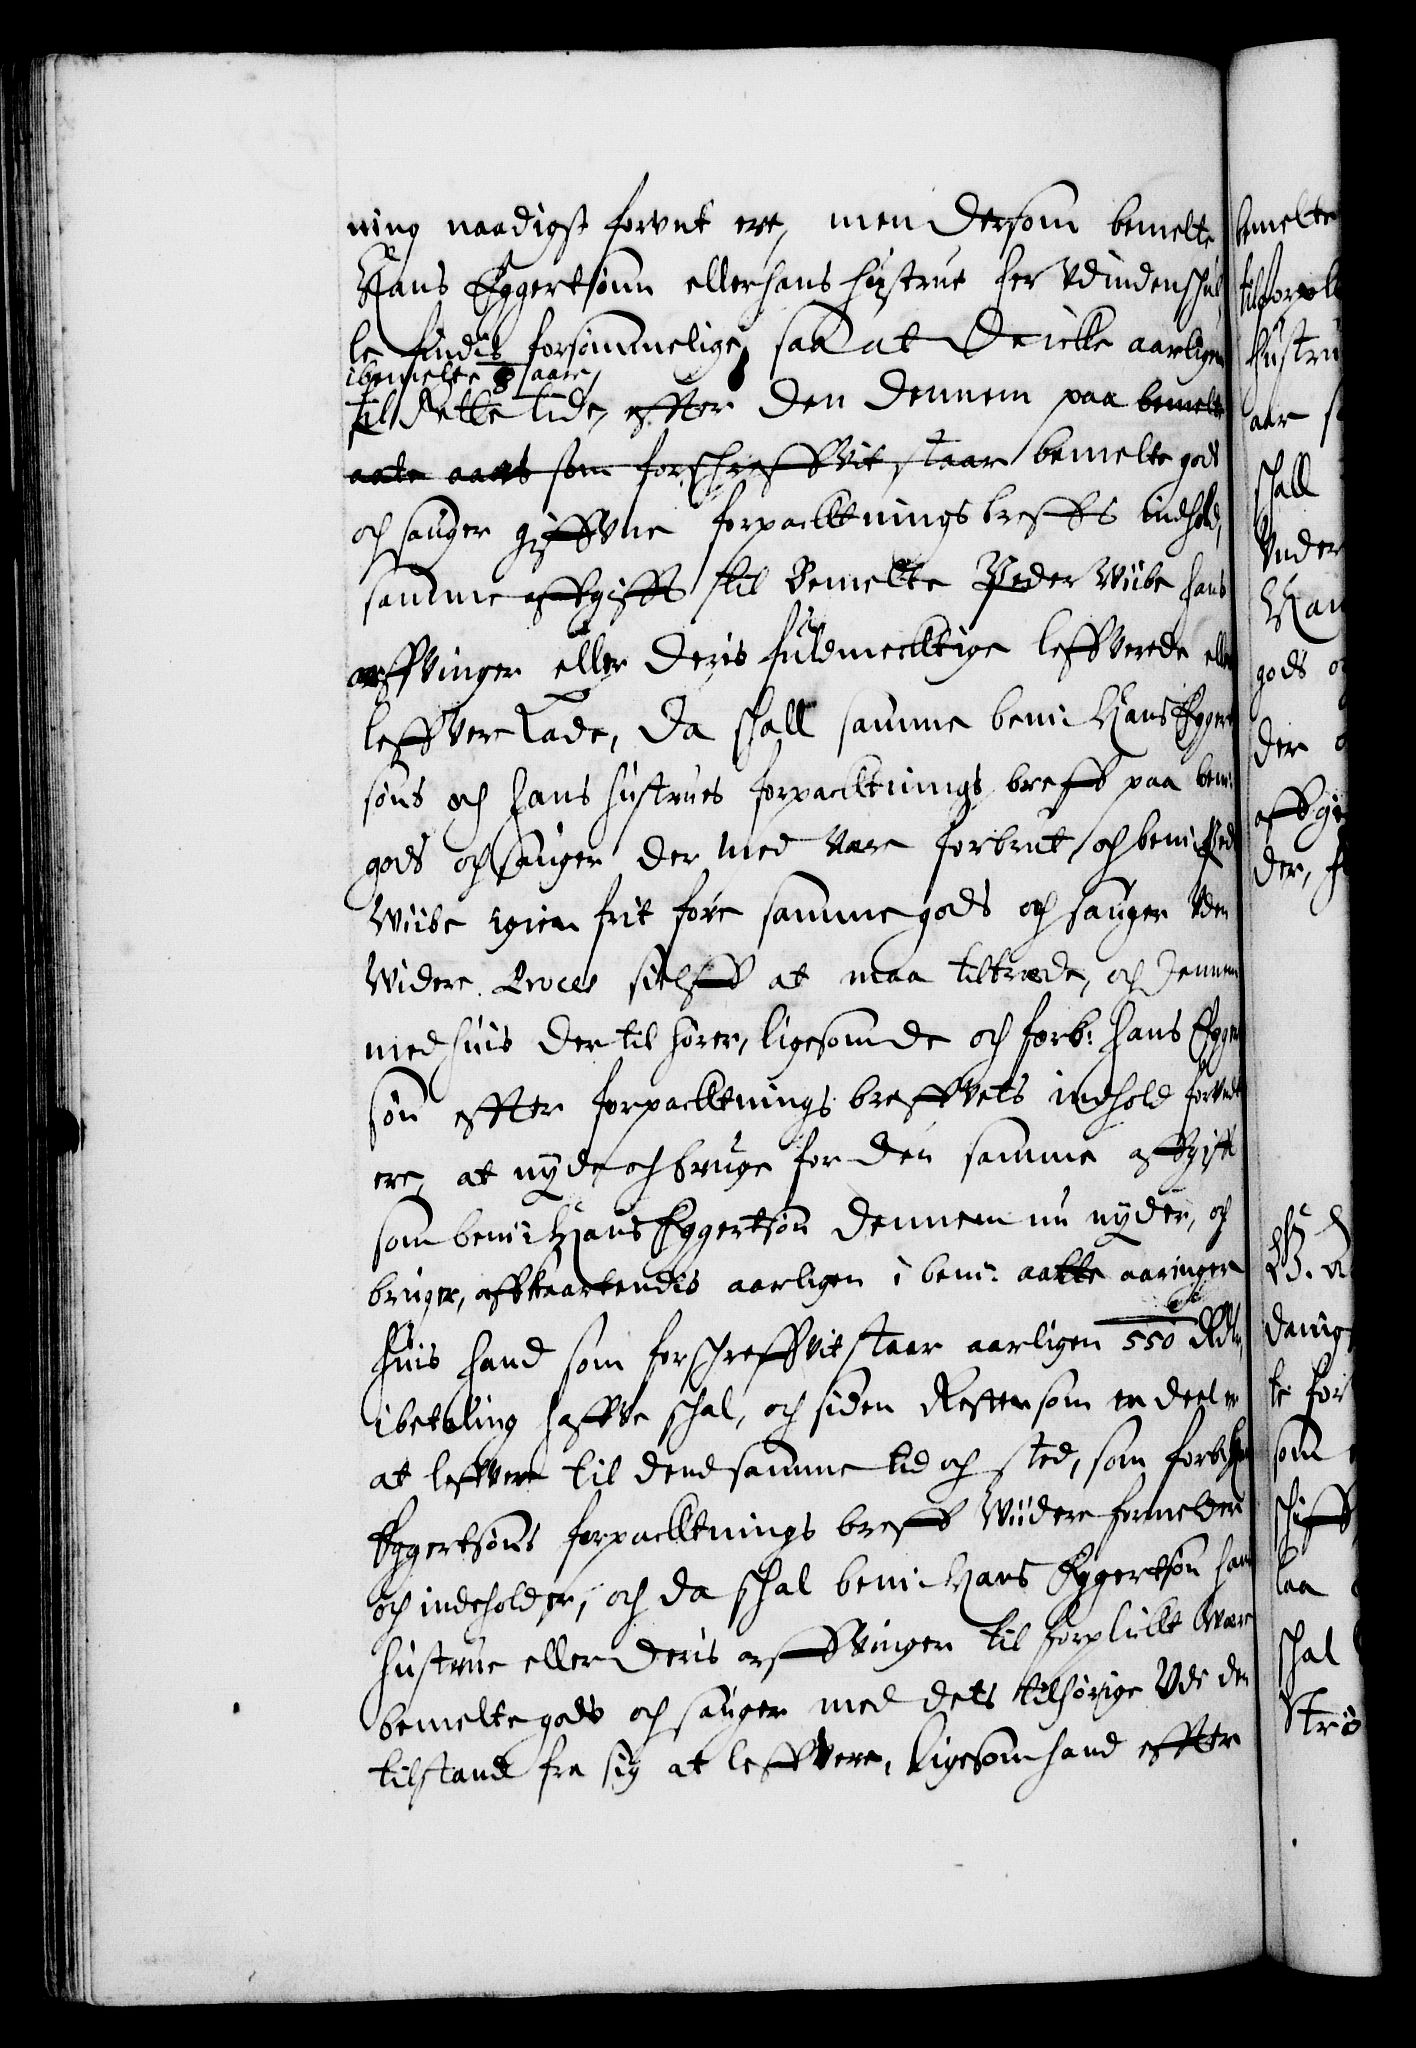 ning naadigst forunt ere, men dersom bemelte
Hans Eggertsønn eller hans hustrue her udinden schul
le findis forsømmelige, saa at de icke aarligen
ibemelte 8 aare,
til Rette tide, effter den dennem paa bemelte
aate aars som forschreffvit staar bemelte gods
och sauger giffvne forpacktnings breffs indhold,
samme affgifft til Bemelte Peder Wiibe hans
arffvinger eller deris fuldmecktige leffverede eller
leffvere lade, da schall samme bem: Hans Eggert
søns och hans hustrues forpacktnings breff paa bem:
gods och sauger der med være forbrut, och bem: Ped
Wiibe igien frit føre samme gods och sauger uden
Widere Proces sielff at maa tiltræde, och dennem
med huis der til hører, ligesom de och forb: Hans Egger
søn effter forpacktnings breffvets indhold forundt
ere, at nyde och bruge for den samme affgifft
som bem: Hans Eggertsøn dennem nu nyder, och
bruger, affkaartendis aarligen i bem: aatte aaringer
huis hand som forschreffvit staar aarligen 550 Rdlr,
i betaling haffve schal, och siden Resten som en deel er
at leffvere til dend samme tid och sted, som forb: Hans
Eggertsøns forpacktnings breff Wiidere formelder
och indeholder, och da schal bem: Hans Eggertsøn hans
hustrue eller deris arffvinger til forplickt være
bemelte gods och sauger med dets tilhørige Udi den
tilstand fra sig at leffvere, ligesom hand effter